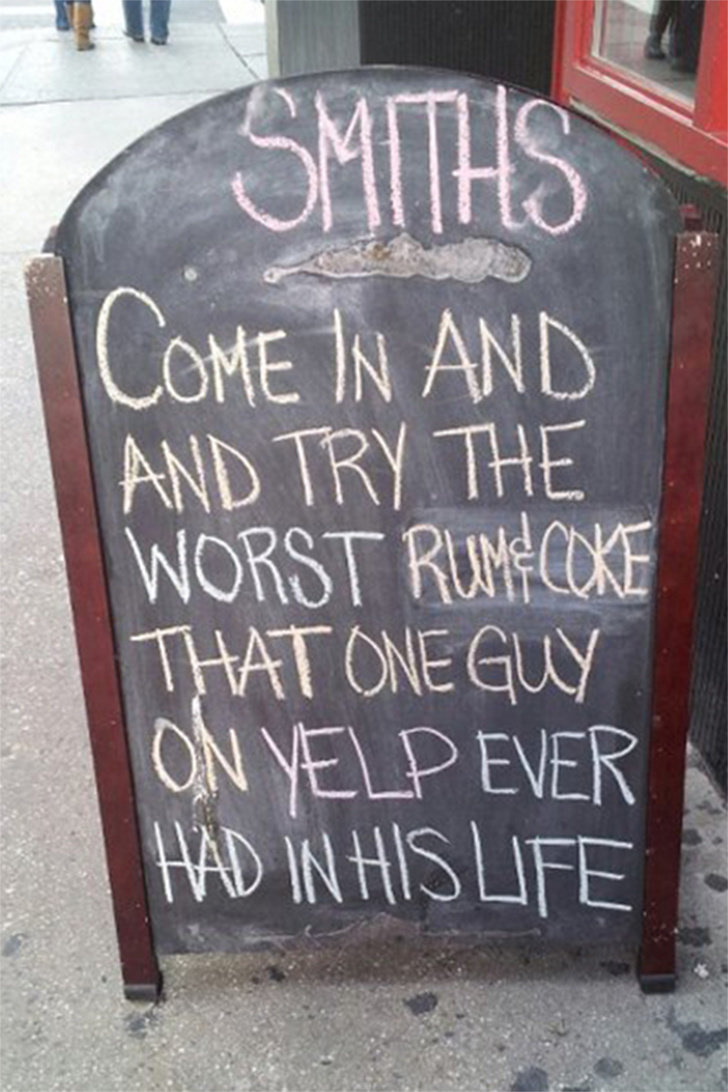 SMITHS
COME IN AND
AND TRY THE
WORST RUM & COKE
THAT ONE GUY
ON YELP EVER
HAD IN HIS LIFE